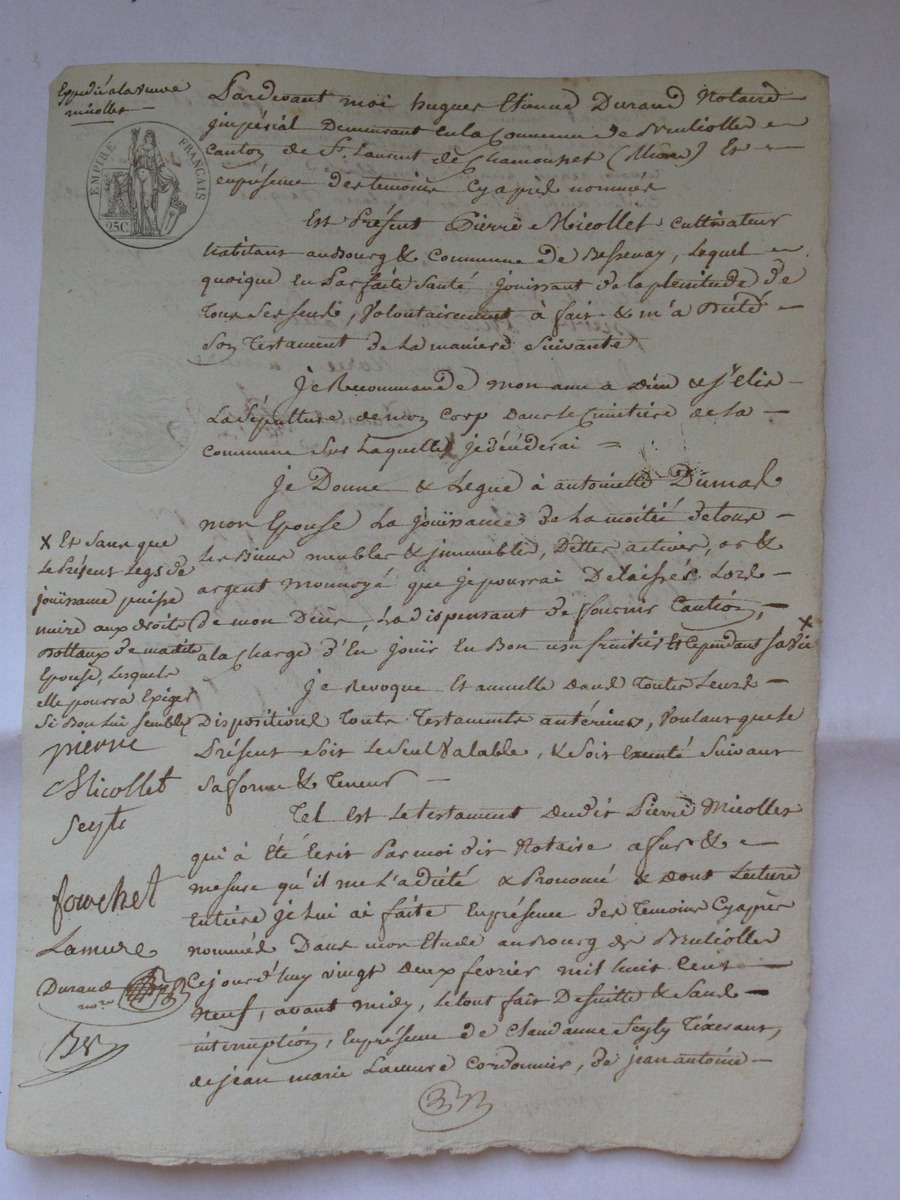 Expedié a la veuve
micollet
EMPIRE FRANÇAIS
25C
Pardevant moi hugues Etienne Durand Notaire
jmpérial Demeurant en la Commune de Brulliolles
Canton de St. Laurent de Chamousset (Rhône) Et
enprésence des temoins Cyaprès nommés
Est Présent Pierre Micollet cultivateur
habitant au Bourg & Commune de Bessenay, Lequel
quoique en Parfaite Santé jouissant de la plenitude de
Tous Ses Sens, Volontairement à fait & m'a Dicté
Son Testament de La maniere Suivante
je Recommande mon ame a Dieu & j'elis
La Sépulture de mon Corp dans le Cimitière de la
Commune Sur Laquelle je déciderai
je Donne & Legue à antoinette Dumas
mon Epouse La jouissance de La moitié de tous
Les Biens meubles & jmmeubles, Dettes actives, or &
argent monnoyé que je pourrai Delaisser Lors
de mon Décès, La dispensant de fournir Caution,
a la Charge d'En jouir En Bon usufruitier Et Cependant Sa Vie X
je Revoque Et annulle dans toutes Leurs
Dispositions Touts Testaments antérieurs, Voulant que le
Présent Soit Le Seul Valable, & Soit Executé Suivant
Sa forme & Teneur
Tel Est Le testament dudit Pierre Micollet
qui à Eté Ecrit Par moi dit Notaire a fur &
mesure qu'il me L'a dicté & Prononcé & dont Lecture
Entière je Lui ai faite Enprésence des Temoins Cyaprès
nommés Dans mon Etude au Bourg de Brulliolles
Cejourd'huy vingt deux fevrier mil huit Cent
Neuf, avant midy, le tout fait De suitte & Sans
interruption, Enprésence de Claudanne Seyty Tixerant,
de jean marie Lamure Cordonnier, de jean antoine
X Et Sans que
Le Présent Legs de
jouissance puisse
nuire aux droits
dottaux de ma dite
Epouse, Lesquels
elle pourra Exiger
Si Bon Lui Semble
pierre
Micollet
Seyty
fouchet
Lamure
Durand
nore